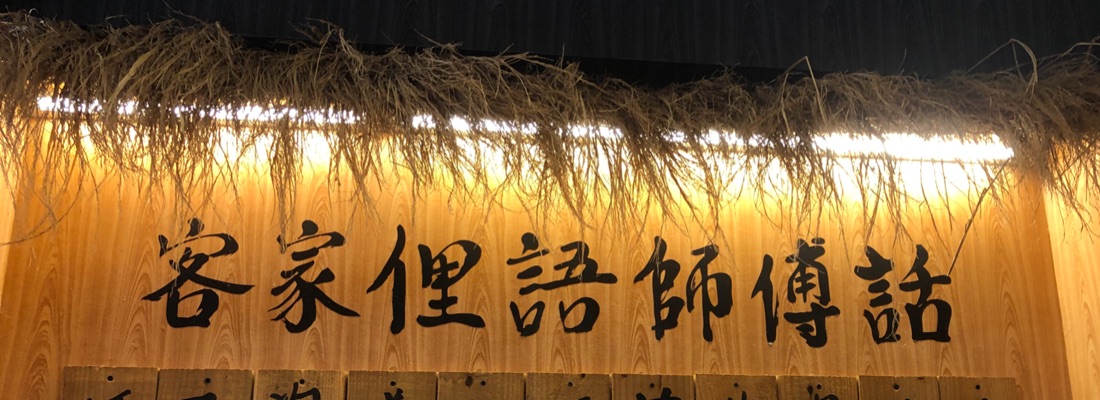 客家俚語師傅話